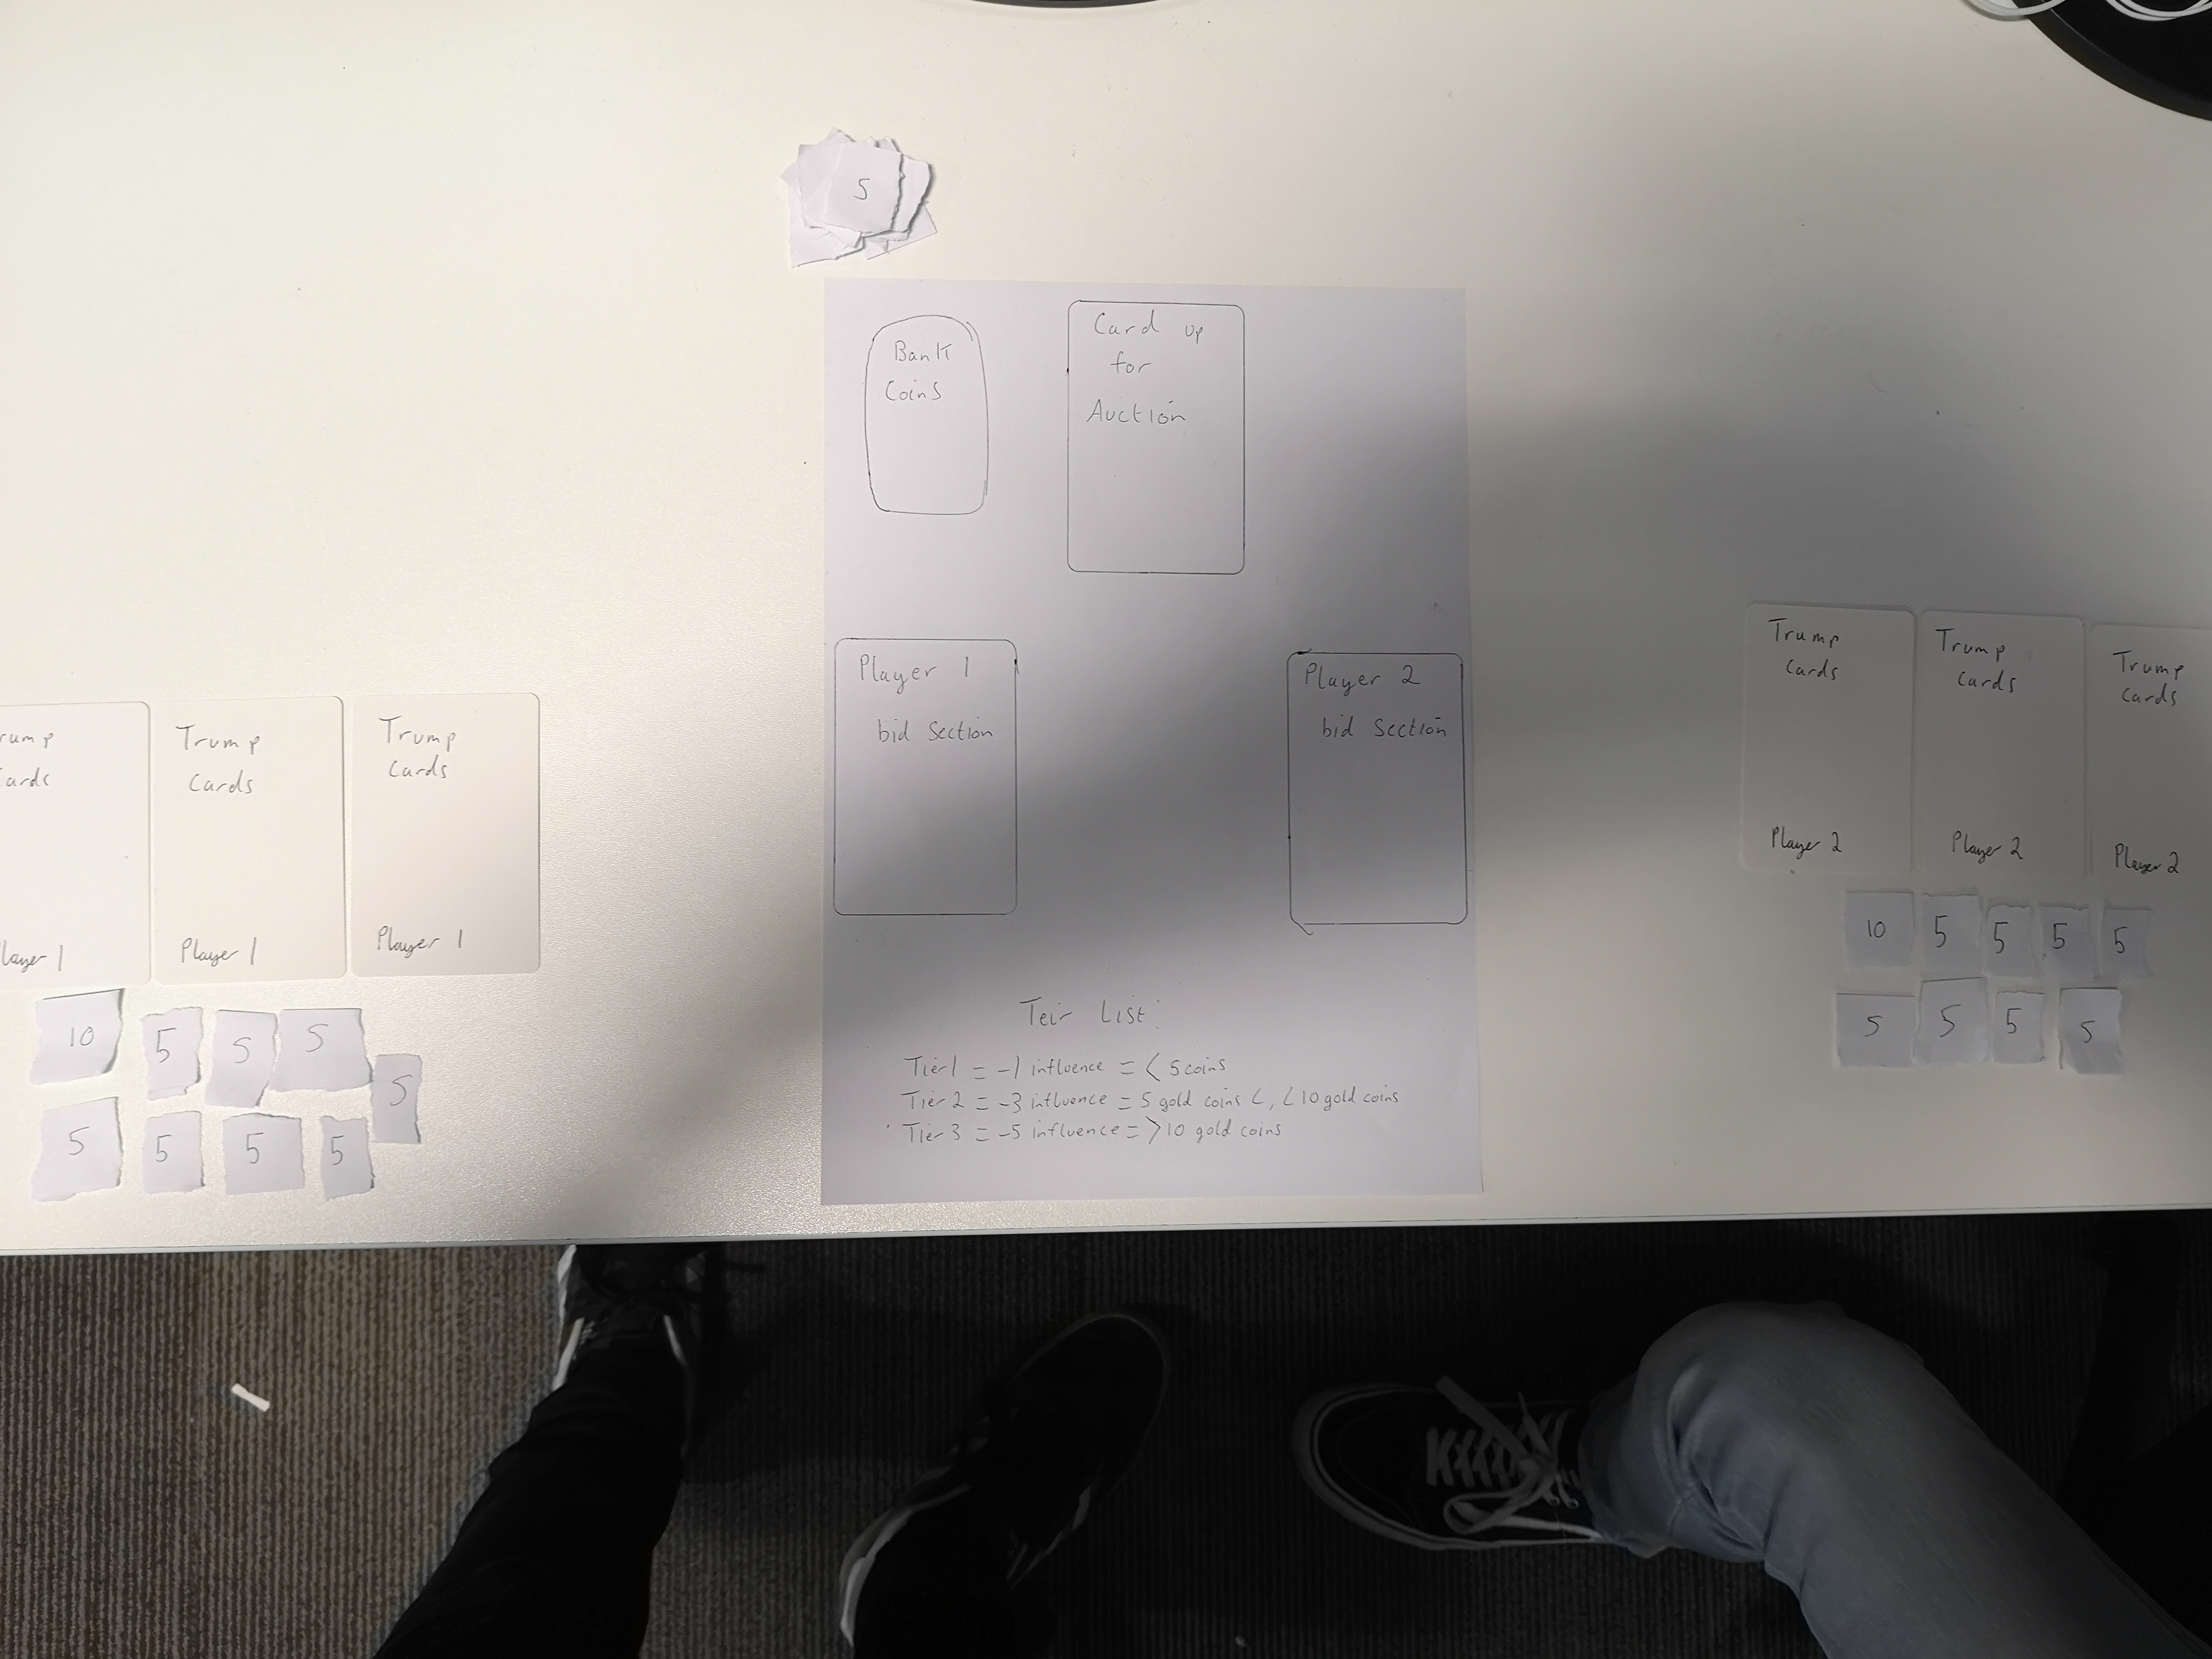 5
Bank
Coins
Card up
for
Auction
Player 1
bid Section
Player 2
bid Section
Teir List:
Tier 1 = -1 influence = < 5 coins
Tier 2 = -3 influence = 5 gold coins <, < 10 gold coins
Tier 3 = -5 influence = > 10 gold coins
rump
ards
layer 1
Trump
Cards
Player 1
Trump
Cards
Player 1
10 5 5 5
5
5 5 5 5
Trump
Cards
Player 2
Trump
Cards
Player 2
Trump
Cards
Player 2
10 5 5 5 5
5 5 5 5